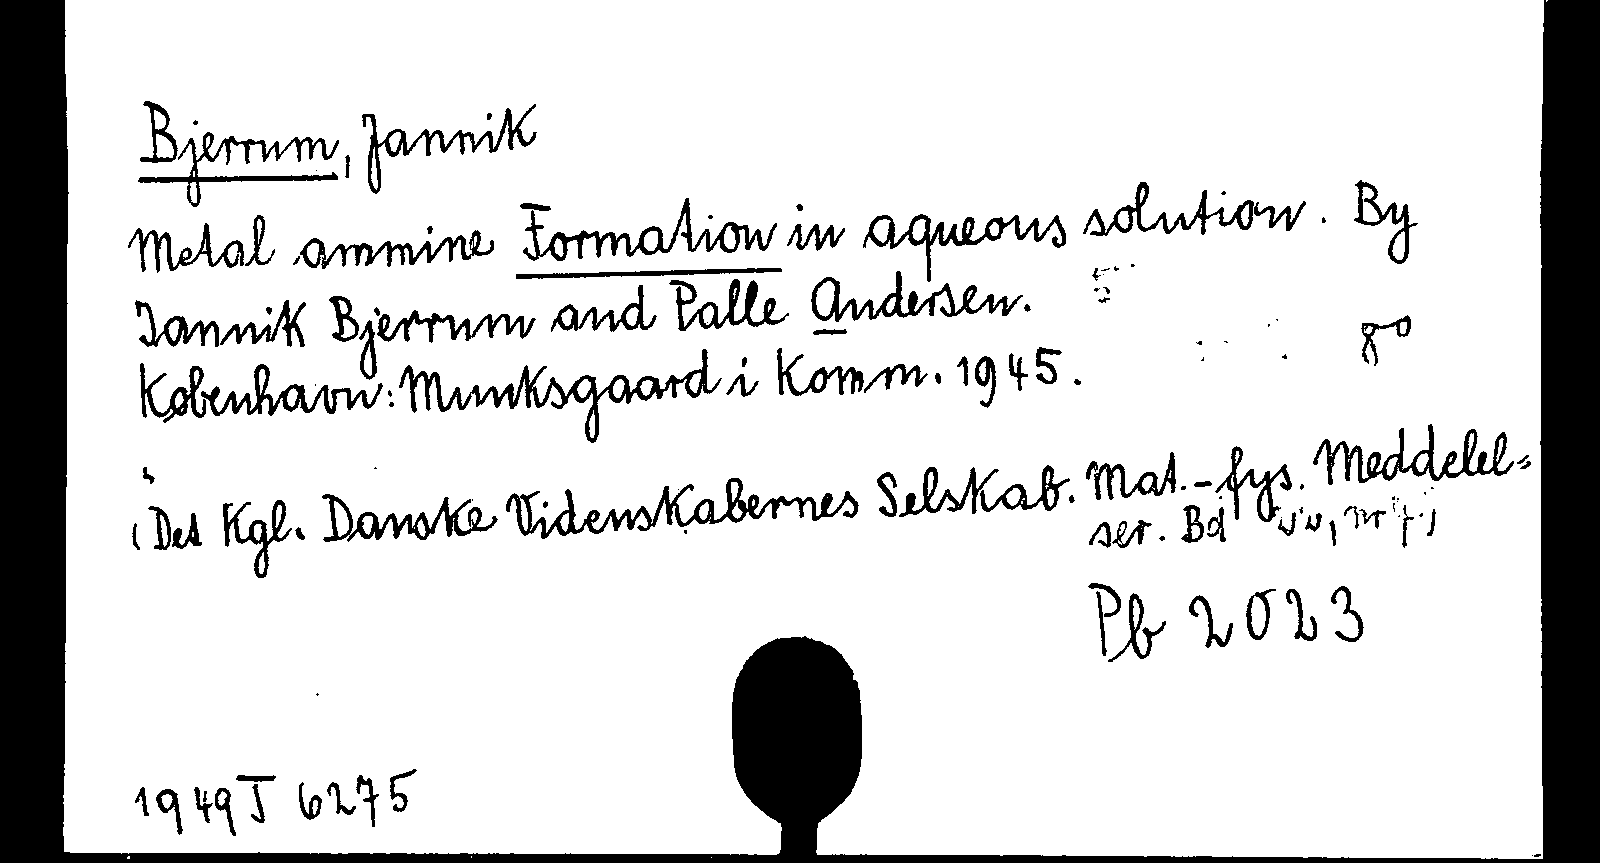 Bjerrum, Jannik
Metal ammine Formation in aqueous solution. By
Jannik Bjerrum and Palle Andersen.
8°
København: Munksgaard i Komm. 1945.
(Det Kgl. Danske Videnskabernes Selskab. Mat.-fys. Meddelel=
ser. Bd , nr 7.)
Pb 2023
1949 J 6275